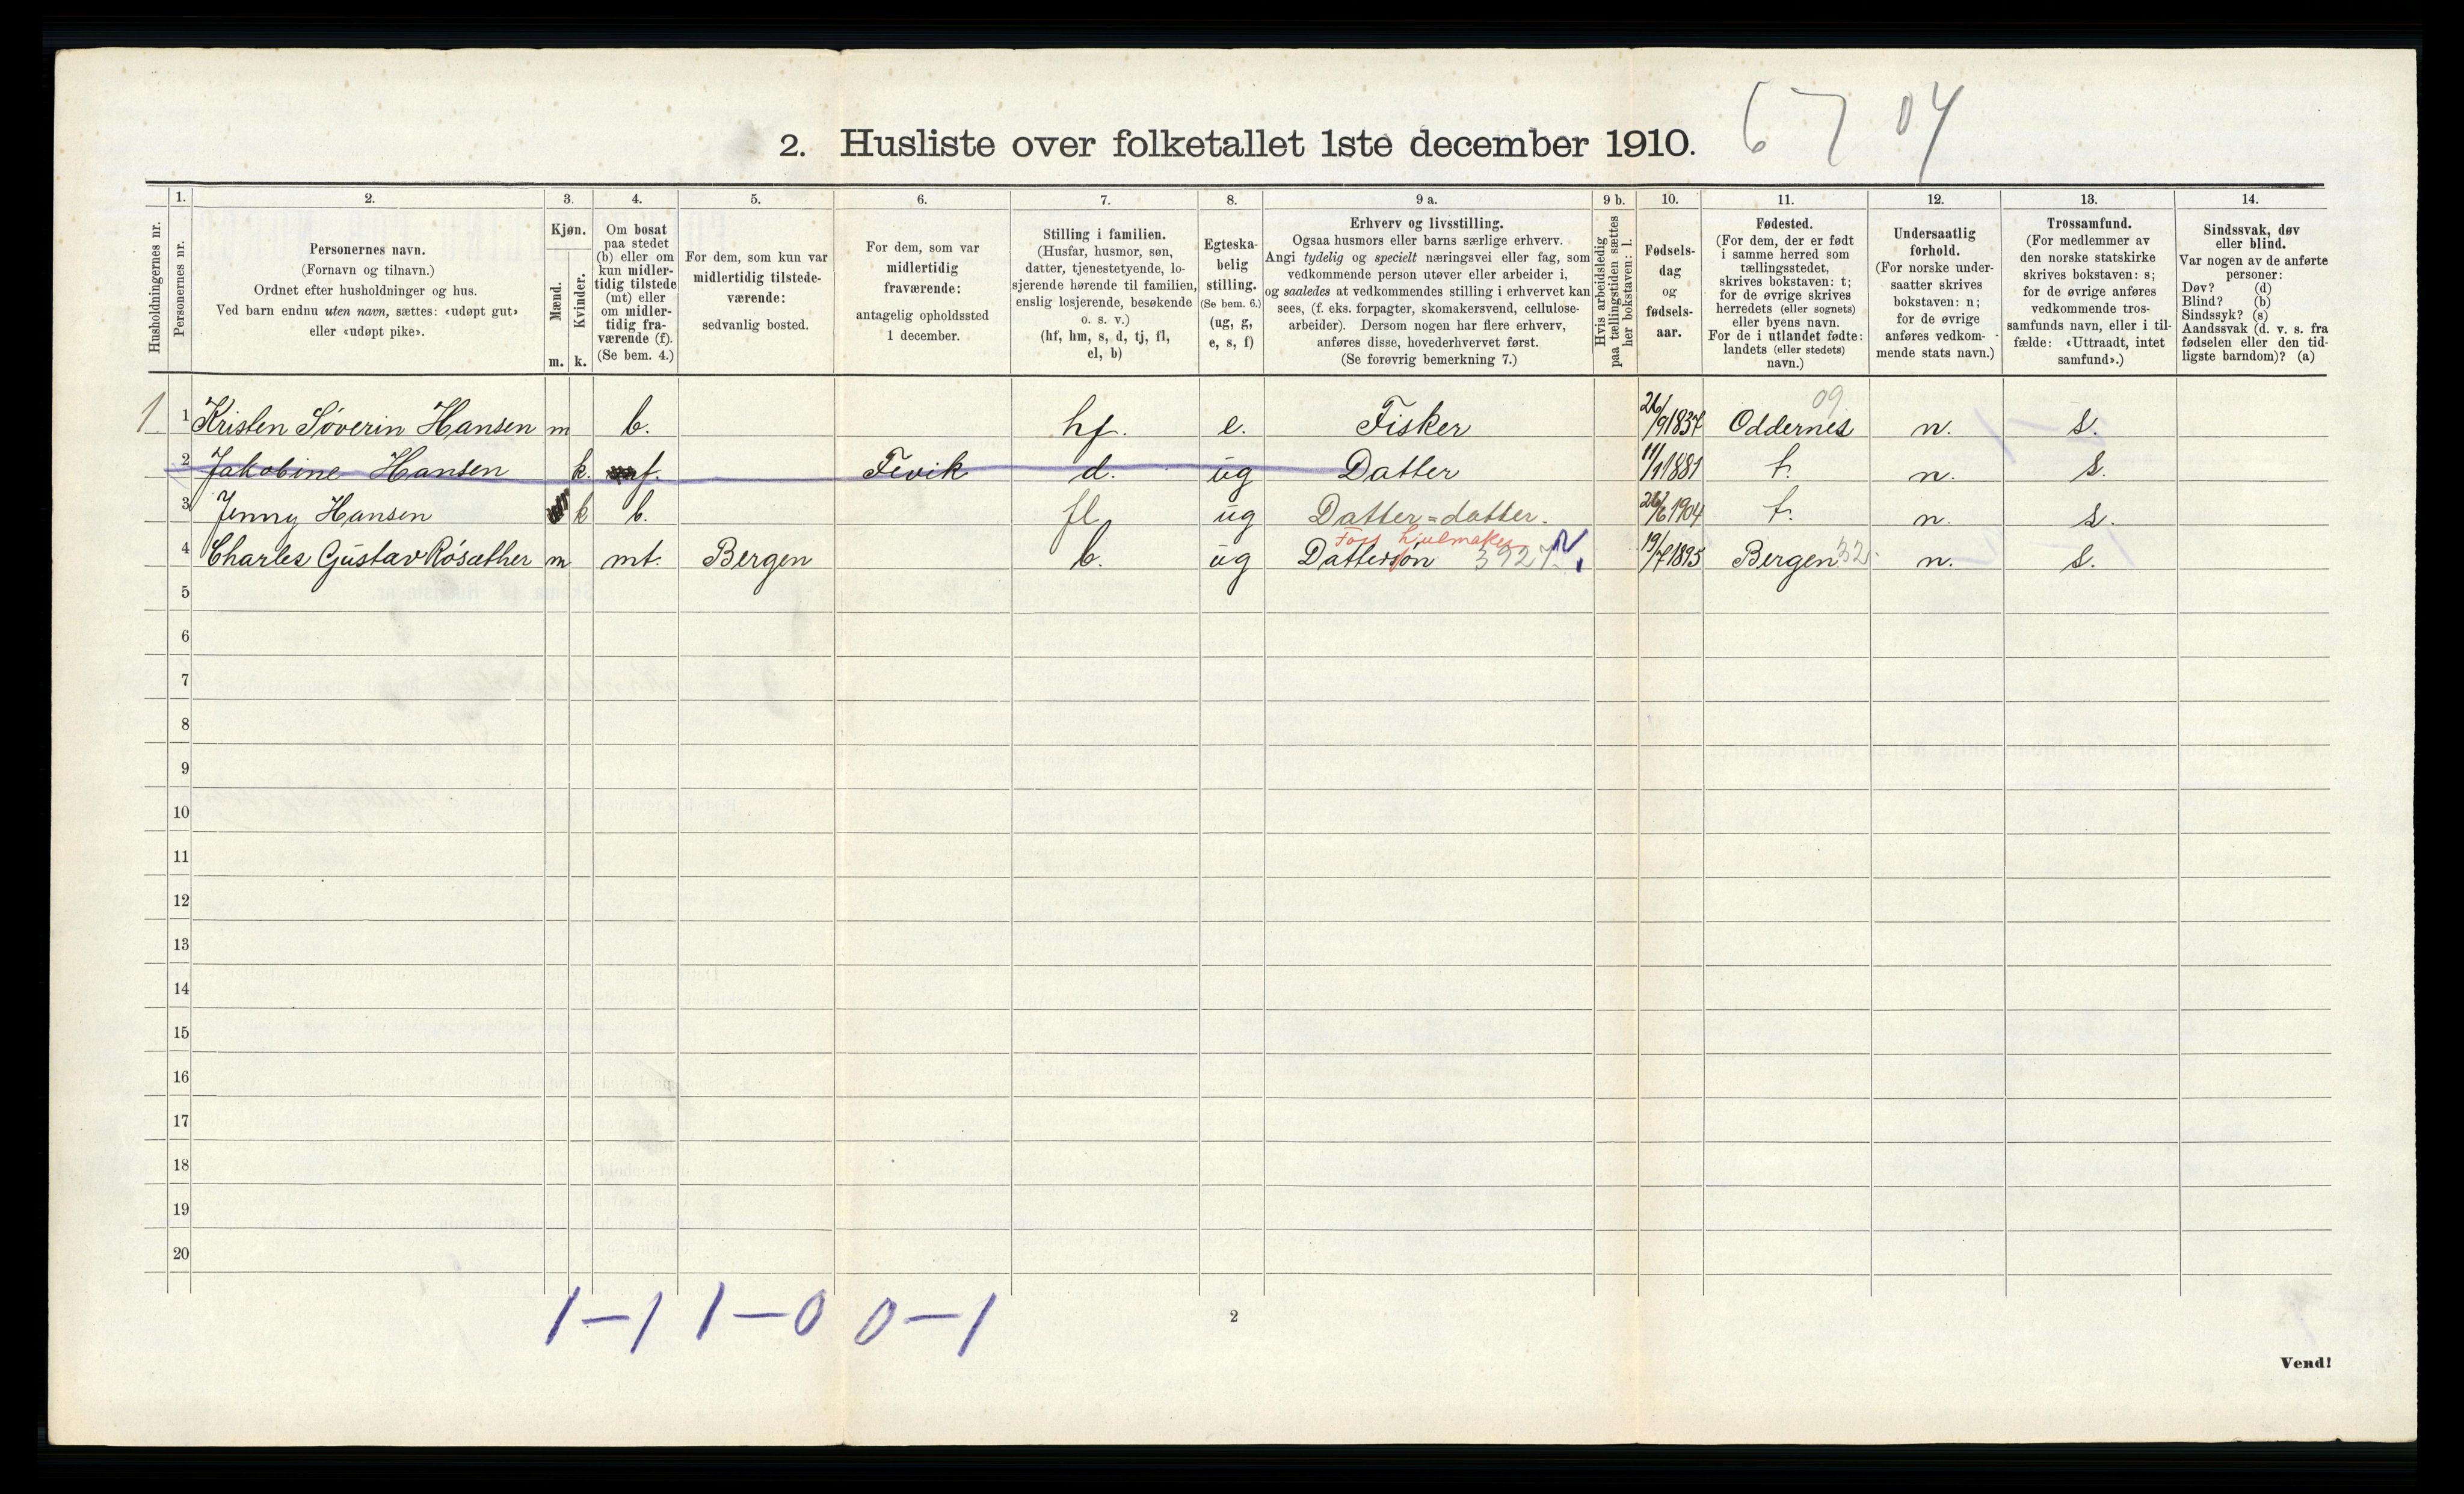 2. Husliste over folketallet 1ste december 1910.
6704
Husholdningernes nr.
1.
Personernes nr.
2.
Personernes navn.
(Fornavn og tilnavn.)
Ordnet efter husholdninger og hus.
Ved barn endnu uten navn, sættes: «udøpt gut»
eller «udøpt pike».
3.
Kjøn.
Mænd.
Kvinder.
m. k.
4.
Om bosat
paa stedet
(b) eller om
kun midler-
tidig tilstede
(mt) eller
om midler-
tidig fra-
værende (f).
(Se bem. 4.)
5.
For dem, som kun var
midlertidig tilstede-
værende:
sedvanlig bosted.
6.
For dem, som var
midlertidig
fraværende:
antagelig opholdssted
1 december.
7.
Stilling i familien.
(Husfar, husmor, søn,
datter, tjenestetyende, lo-
sjerende hørende til familien,
enslig losjerende, besøkende
o. s. v.)
(hf, hm, s, d, tj, fl,
el, b)
8.
Egteska-
belig
stilling.
(Se bem. 6.)
(ug, g,
e, s, f)
9 a.
Erhverv og livsstilling.
Ogsaa husmors eller barns særlige erhverv.
Angi tydelig og specielt næringsvei eller fag, som
vedkommende person utøver eller arbeider i,
og saaledes at vedkommendes stilling i erhvervet kan
sees, (f. eks. forpagter, skomakersvend, cellulose-
arbeider). Dersom nogen har flere erhverv,
anføres disse, hovederhvervet først.
(Se forøvrig bemerkning 7.)
9 b.
Hvis arbeidsledig
paa tællingstiden sættes
her bokstaven: l.
10.
Fødsels-
dag
og
fødsels-
aar.
11.
Fødested.
(For dem, der er født
i samme herred som
tællingsstedet,
skrives bokstaven: t;
for de øvrige skrives
herredets (eller sognets)
eller byens navn.
For de i utlandet fødte:
landets (eller stedets)
navn.)
12.
Undersaatlig
forhold.
(For norske under-
saatter skrives
bokstaven: n;
for de øvrige
anføres vedkom-
mende stats navn.)
13.
Trossamfund.
(For medlemmer av
den norske statskirke
skrives bokstaven: s;
for de øvrige anføres
vedkommende tros-
samfunds navn, eller i til-
fælde: «Uttraadt, intet
samfund».)
14.
Sindssvak, døv
eller blind.
Var nogen av de anførte
personer:
Døv? (d)
Blind? (b)
Sindssyk? (s)
Aandssvak (d. v. s. fra
fødselen eller den tid-
ligste barndom)? (a)
09
1 1 Kristen Søverin Hansen m b. hf. e. Fisker 26/9 1837 Oddernes n. s.
2 Jakobine Hansen k. f. Fevik d. ug Datter 11/1 1881 t. n. s.
3 Jenny Hansen k b. fl ug Datter=datter. 26/6 1904 t. n. s.
hjulmaker
4 Charles Gustav Røsæther m mt. Bergen b. ug Dattersøn 3927 19/7 1895 Bergen 32 n. s.
5
6
7
8
9
10
11
12
13
14
15
16
17
18
19
20
1-1 1-0 0-1
2
Vend!